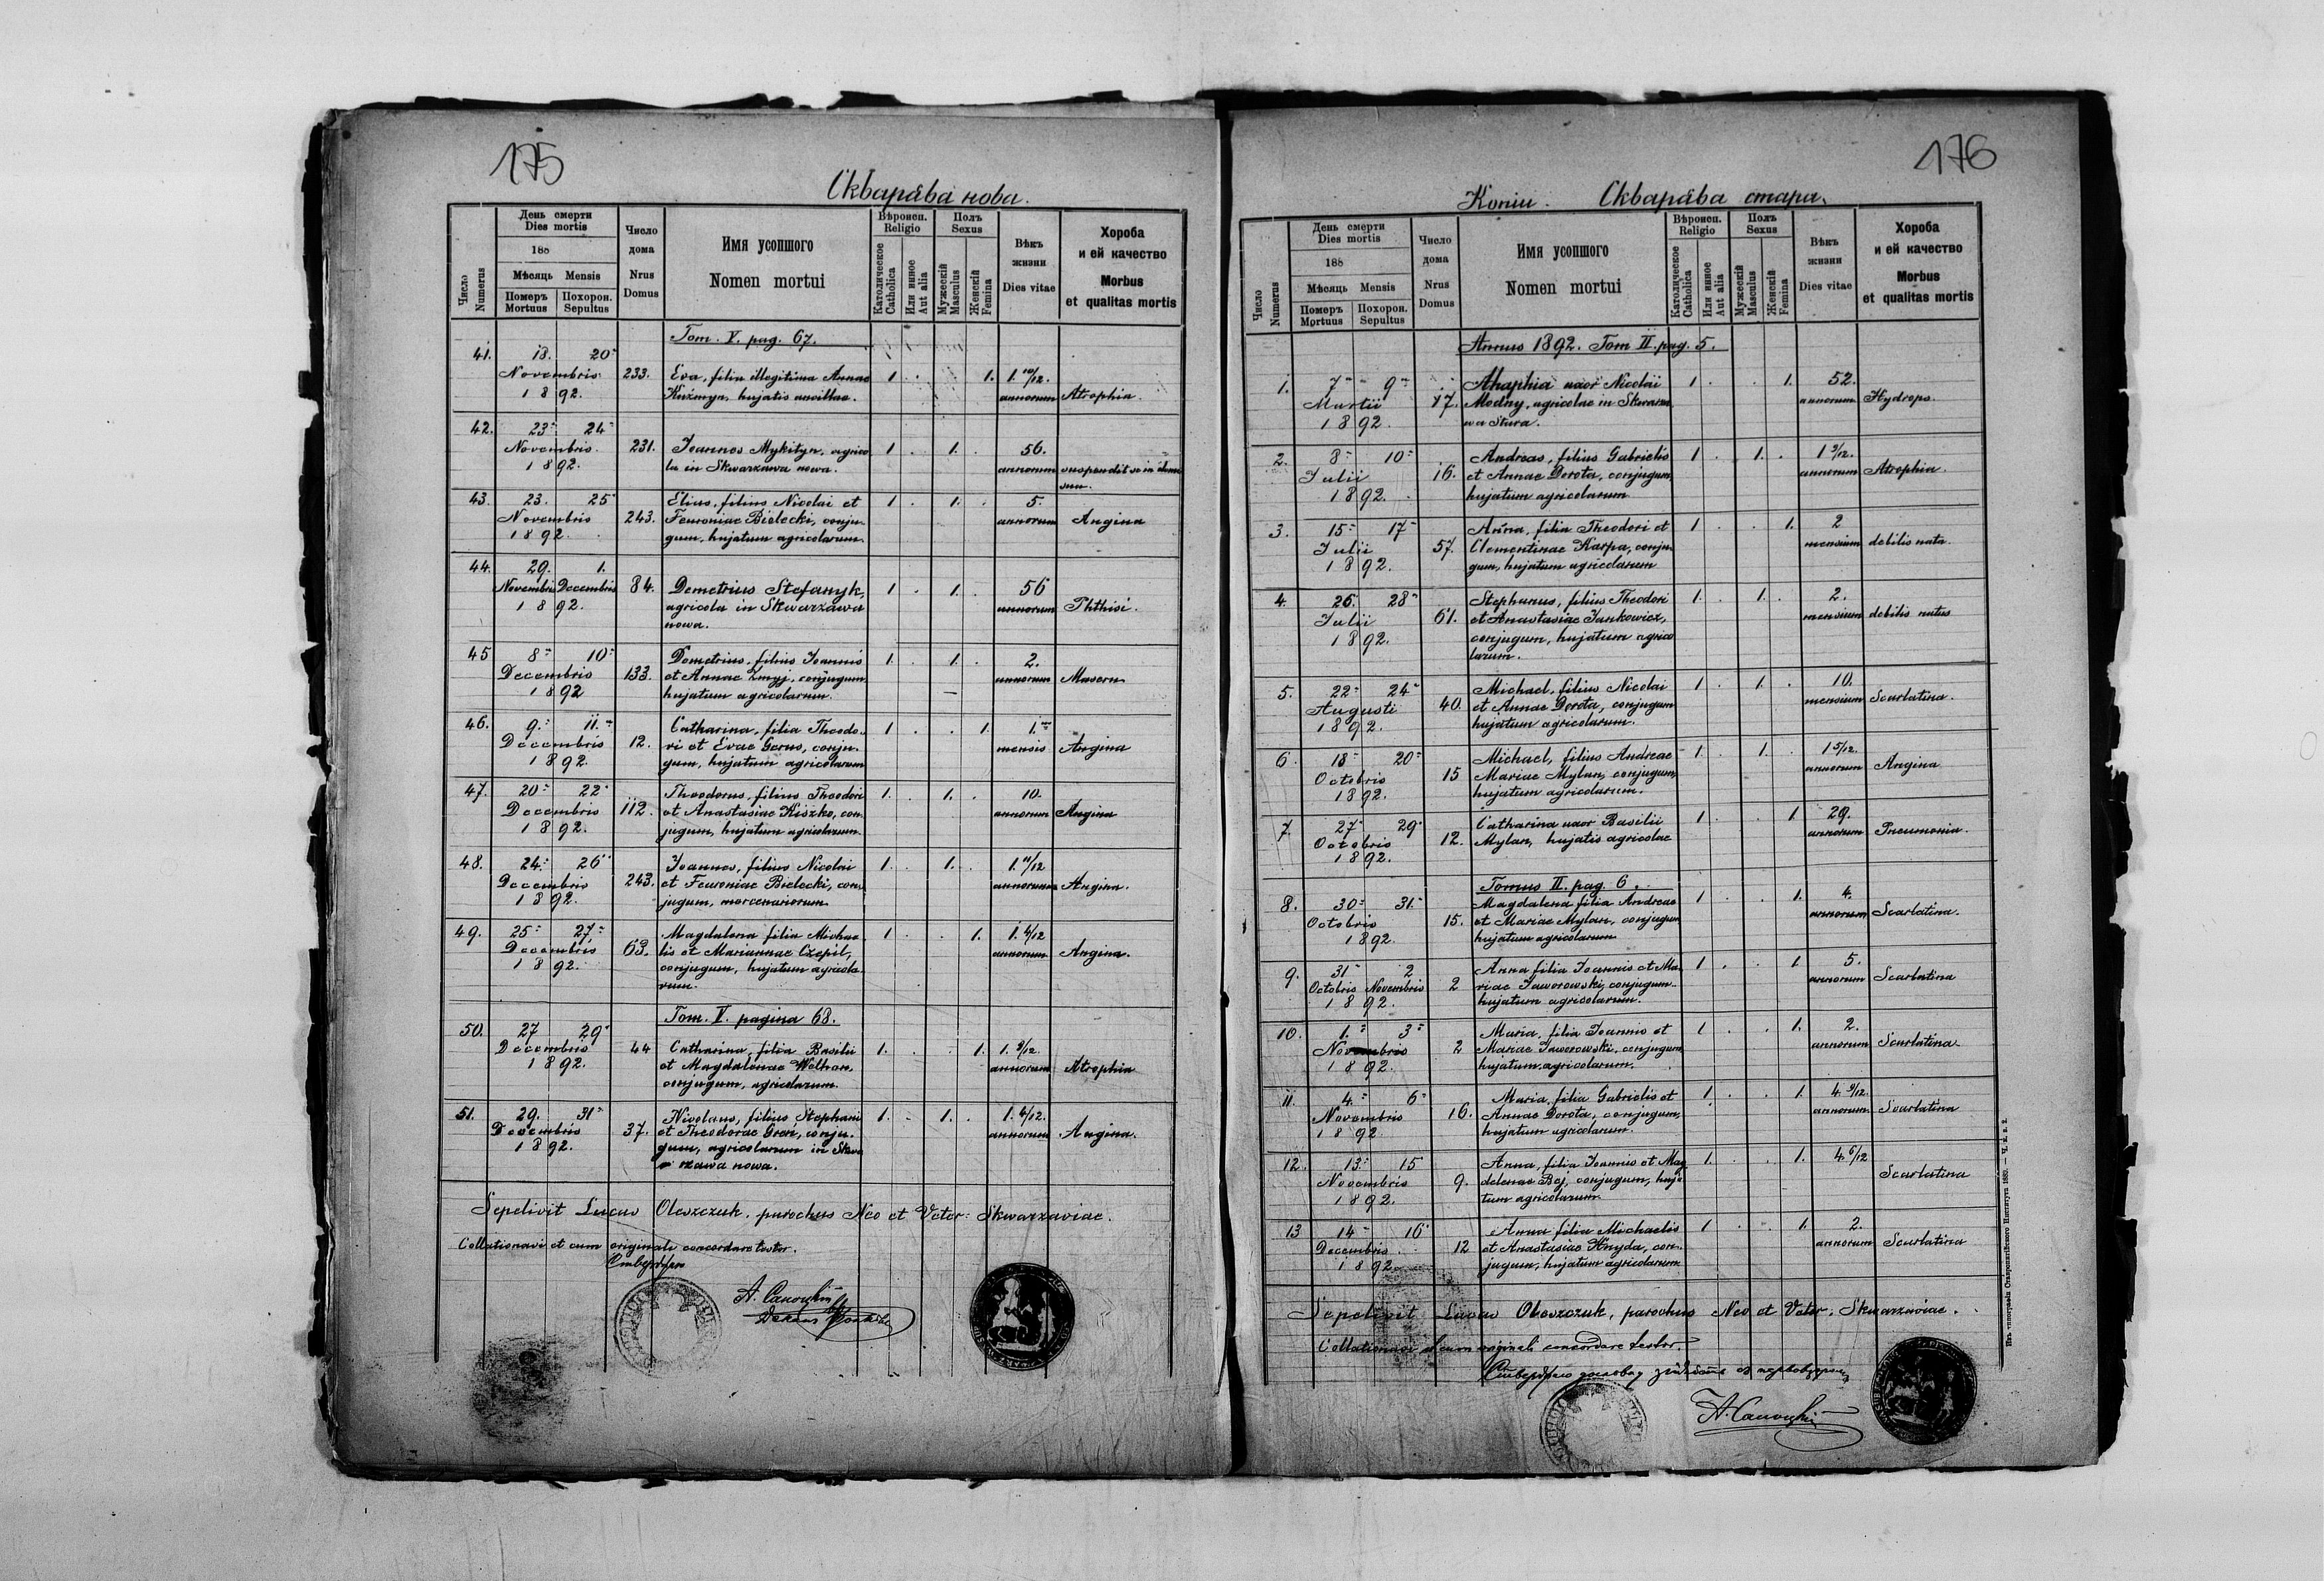 175
Скварѣва нова.
Число
Numerus
День смерти
Dies mortis
188
Мѣсяць Mensis
Померъ
Mortuus
Похорон.
Sepultus
Число
дома
Nrus
Domus
Имя усопшого
Nomen mortui
Вѣроисп.
Religio
Католическое
Catholica
Или инное
Aut alia
Полъ
Sexus
Мужескій
Masculus
Женскій
Femina
Вѣкъ
жизни
Dies vitae
Хороба
и ей качество
Morbus
et qualitas mortis
Tom. V. pag. 67.
41. 18. 20
Novembris 233. Eva, filia illegitima Annae 1. 1. 1. 10/12.
1892. Kuźmyn, hujatis ancillae. annorum Atrophia.
42. 23 24
Novembris 231. Joannes Mykityn, agrico 1. 1. 56.
1892. la in Skwarzawa nowa. annorum suspendit se in
43. 23. 25 Elias, filius Nicolai et 1. 1. 5.
Novembris 243. Fewroniae Bielecki, conju- annorum Angina
1892. gum, hujatum agricolarum.
44. 29. 1.
Novembris Decembris 84. Demetrius Stefanyk, 1. 1. 56
1892. agricola in Skwarzawa annorum Phthisi.
nowa.
45 8 10 Demetrius, filius Joannis 1. 1. 2.
Decembris 133. et Annae Zmyj, conjugum annorum Macern
1892 hujatum agricolarum.
46. 9. 11. Catharina, filia Theodo- 1 1. 1.
Decembris 12. ri et Evae Gerus, conju- mensis Angina
1892. gum, hujatum agricolarum
47. 20 22 Theodorus, filius Theodori 1. 1. 10.
Decembris 112. et Anastasiae Kiszko, con- annorum Angina
1892. jugum, hujatum agricolarum.
48. 24. 26 Joannes, filius Nicolai 1. 1. 1. 11/12
Decembris 243. et Fewroniae Bielecki, con- annorum Angina.
1892. jugum, mercenariorum
49. 25 27 Magdalena filia Michae- 1. 1. 1. 4/12
Decembris 63. lis et Mariannae Czepil, annorum Angina.
1892. conjugum, hujatum agricola-
rum.
Tom. V. pagina 68.
50. 27 29
Decembris 44 Catharina, filia Basilii 1. 1. 1. 9/12.
1892. et Magdalenae Wolhan, annorum Atrophia
conjugum, agricolarum.
51. 29. 31 Nicolaus, filius Stephani 1. 1. 1. 4/12.
Decembris 37. et Theodorae Greń, conju- annorum Angina.
1892. gum, agricolarum in Skwa
rzawa nowa.
Sepelivit Lucas Oleszczuk, parochus Neo et Veter: Skwarzaviae.
Collationavi et cum originali concordare testor.
176
Копіи. Скварѣва стара.
Число
Numerus
День смерти
Dies mortis
188
Мѣсяць Mensis
Померъ
Mortuus
Похорон.
Sepultus
Число
дома
Nrus
Domus
Имя усопшого
Nomen mortui
Вѣроисп.
Religio
Католическое
Catholica
Или инное
Aut alia
Полъ
Sexus
Мужескій
Masculus
Женскій
Femina
Вѣкъ
жизни
Dies vitae
Хороба
и ей качество
Morbus
et qualitas mortis
Annus 1892. Tom II. pag. 5.
1. 7 9 Ahaphia uxor Nicolai 1 1. 52.
Martii 17. Modny, agricolae in Skwarza annorum Hydrops.
1892. wa Stara.
2. 8 10 Andreas, filius Gabrielis 1 1. 1 9/12.
Julii 16. et Annae Dorota, conjugum, annorum Atrophia.
1892. hujatum agricolarum
3. 15 17 Anna, filia Theodori et 1 1. 2
Julii 57. Clementinae Karpa, conju- mensium debilis nata.
1892. gum, hujatum agricolarum
4. 26. 28 Stephanus, filius Theodori 1. 1. 2.
Julii 61. et Anastasiae Jankowicz, mensium debilis natus
1892. conjugum, hujatum agrico
larum.
5. 22 24 Michael, filius Nicolai 1 1. 10.
Augusti 40. et Annae Dorota, conjugum mensium Scarlatina.
1892. hujatum agricolarum.
6. 18 20 Michael, filius Andreae 1. 1. 1 5/12.
Octobris 15 Mariae Mylan, conjugum, annorum Angina
1892. hujatum agricolarum.
7. 27 29 Catharina uxor Basilii 1 1 29.
Octobris 12. Mylan, hujatis agricolae annorum Pneumonia.
1892.
Tomus II. pag. 6.
8. 30 31 Magdalena filia Andreae 1 1. 4.
Octobris 15. et Mariae Mylan, conjugum annorum Scarlatina.
1892. hujatum agricolarum
9. 31 2 Anna filia Joannis et Ma- 1 1 5.
Octobris Novembris 2 riae Jaworowski, conjugum annorum Scarlatina
1892. hujatum agricolarum.
10. 1. 3 Maria, filia Joannis et 1 1. 2.
Novembris 2 Mariae Jaworowski, conjugum annorum Scarlatina
1892. hujatum agricolarum.
11. 4. 6 Maria, filia Gabrielis et 1. 1. 4. 9/12.
Novembris 16. Annae Dorota, conjugum, annorum Scarlatina
1892 hujatum agricolarum.
12. 13 15 Anna, filia Joannis et Mag 1. 1. 4. 6/12
Novembris 9. delenae Baj, conjugum, huja Scarlatina
1892. tum agricolarum
13 14 16 Anna filia Michaelis 1 1. 2.
Decembris 12 et Anastasiae Hnyda, con- annorum Scarlatina
1892 jugum, hujatum agricolarum
Sepelivit Lucas Oleszczuk, parochus Neo et Veter. Skwarzaviae.
Collationavi et cum originali concordare testor.
Изъ типографіи Ставропигійского Института 1889. — Ч. н. в. 2.